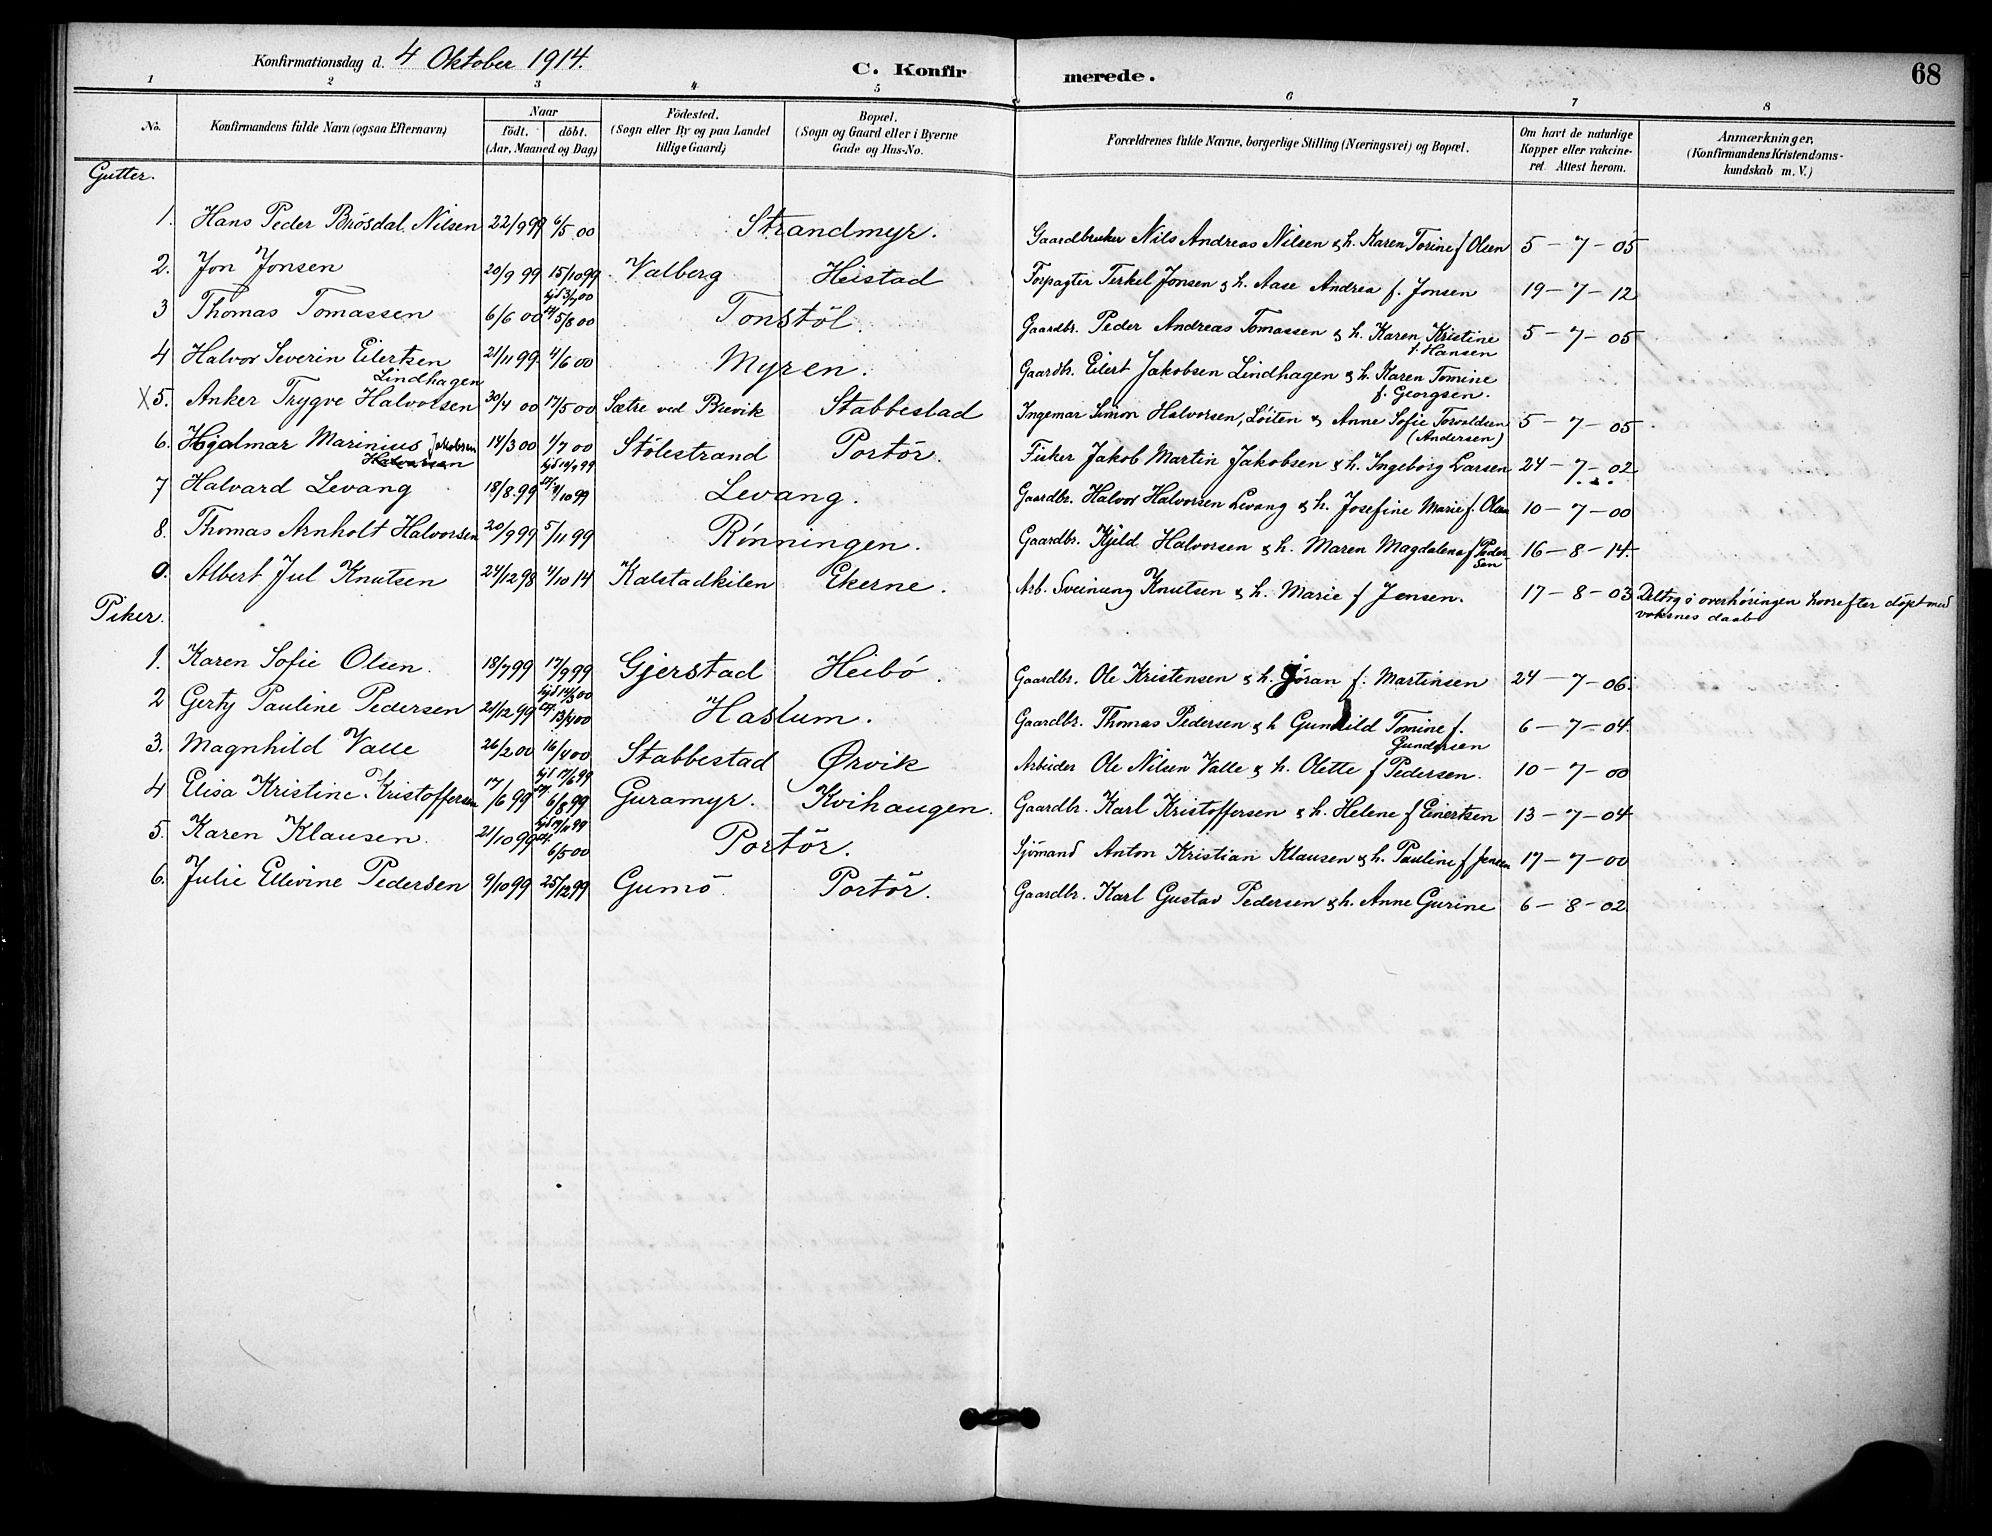 Konfirmationsdag d. 4 Oktober 1914. C. Konfirmerede. 68
1 2 3 4 5 6 7 8
No. Konfirmandens fulde Navn (ogsaa Efternavn) Naar födt. döbt. (Aar, Maaned og Dag) Födested. (Sogn eller By og paa Landet tillige Gaard) Bopæl. (Sogn og Gaard eller i Byerne Gade og Hus-No. Forældrenes fulde Navne, borgerlige Stilling (Næringsvei) og Bopæl. Om havt de naturlige Kopper eller vakcineret. Attest herom. Anmærkninger, (Konfirmandens Kristendomskundskab m. V.)
Gutter.
1. Hans Peder Brösdal Nilsen 22/9 99 6/5 00 Strandmyr. Gaardbruker Nils Andreas Nilsen & h. Karen Torine f Olsen 5 - 7 - 05
2. Jon Jonsen 20/9 99 15/10 99 Valberg Heistad Forpagter Terkel Jonsen & h. Aase Andrea f. Jonsen 19 - 7 - 12
3 Thomas Tomassen 6/6 00 5/8 00 Tonstöl. Gaardbr. Peder Andreas Tomassen & h. Karen Kristine f. Hansen 5 - 7 - 05
4 Halvor Severin Eilertsen Lindhagen 21/11 99 4/6 00 Myren. Gaardb. Eilert Jakobsen Lindhagen & h. Karen Tomine f. Georgsen.
X 5. Anker Trygve Halvorsen 30/4 00 17/5 00 Sætre ved Brevik Stabbestad Ingemar Simon Halvorsen, Löiten & Anne Sofie Torvaldsen (Andersen) 5 - 7 - 05
6. Hjalmar Marinius Jakobsen Halvorsen 14/3 00 1/7 00 Stölestrand Portör. Fisker Jakob Martin Jakobsen & h. Ingeborg Larsen 24 - 7 - 02
7 Halvard Levang 18/8 99 /10 99 Levang. Gaardbr. Halvor Halvorsen Levang & h. Josefine Marie f. Olsen 10 - 7 - 00
8. Thomas Arnholt Halvorsen 20/9 99 5/11 99 Rönningen. Gaardbr. Kjeld Halvorsen & h. Maren Magdalena f Pedersen 16 - 8 - 14
9. Albert Jul Knutsen 24/12 98 4/10 14 Kalstadkilen Ekerne. Arb. Sveinung Knutsen & h. Marie f Jensen. 17 - 8 - 03 Deltog i overhöringen hvorefter döpt med voksnes daab
Piker.
1. Karen Sofie Olsen. 18/7 99 17/9 99 Gjerstad Heibö. Gaardbr. Ole Kristensen & h. Göran f. Martinsen 24 - 7 - 06.
2 Gerty Pauline Pedersen 21/12 99 13/4 00 Haslum. Gaardbr. Thomas Pedersen & h Gunhild Tomine f. Gundersen 6 - 7 - 04.
3. Magnhild Valle 26/2 00 16/4 00 Stabbestad Ørvik Arbeider Ole Nilsen Valle & h. Olette f Pedersen. 10 - 7 - 00
4 Elisa Kristine Kristoffersen 17/6 99 6/8 99 Guramyr. Kvihaugen. Gaardbr. Karl Kristoffersen & h. Helene f Einertsen 13 - 7 - 04
5. Karen Klausen. 21/10 99 6/5 00 Portör. Sjömand Anton Kristian Klausen & h. Pauline f Jensen 17 - 7 - 00
6. Julie Ellevine Pedersen 9/10 99 25/12 99 Gumö. Portör. Gaardbr. Karl Gustav Pedersen & h. Anne Gurine 6 - 8 - 02